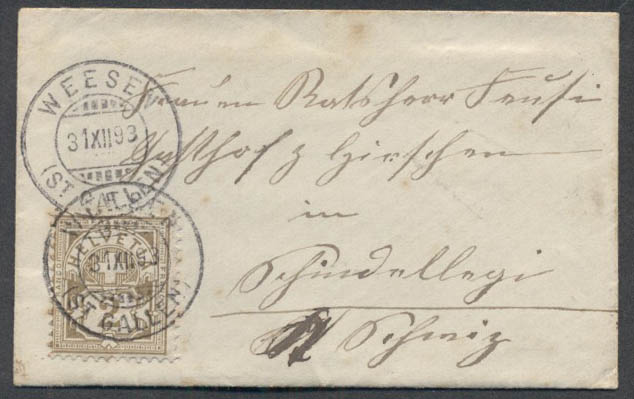 WEESEN
31 XII 93
(ST. GALLEN)
HELVETIA
31 XII 93
(ST. GALLEN)
Frauen Ratsherr Feusi
Gasthof z Hirschen
in
Schindellegi
Kt Schwiz